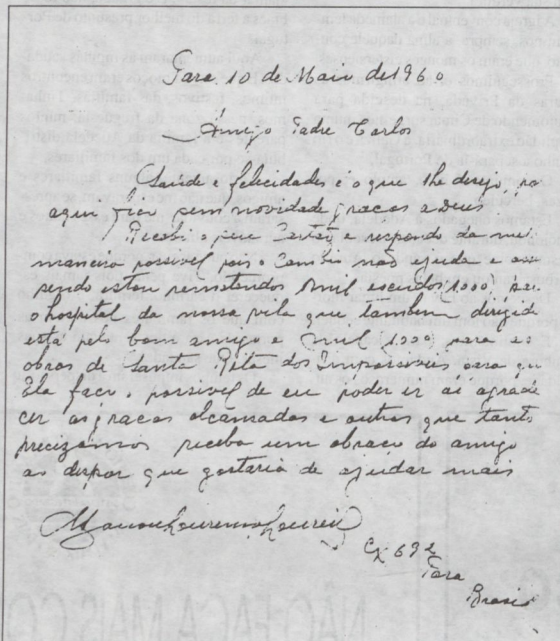 Pará. 10 de Maio de 1960
Amigo Padre Carlos
Saude e felicidades é o que lhe desejo, po
aqui fico sem novidade graças a deus
Recebi o seu Cartão e respondo da mel
maneira possivel pois o Cambio não ajuda e ass
sendo estou remetendo mil escudos 1000 par
o hospital da nossa vela que tambem dirigide
está pelo bom amigo e mil 1.000 para as
obras de Santa Rita dos Impossiveis para qu
Ela faça o possivel de eu poder ir ai agrade
cer as graças alcansadas e outras que tanto
precizamos receba um abraço do amigo
ao dispor que gostaria de ajudar mais
Cx 692
Pará
Brasil
NÃO FAÇA MAIS CO